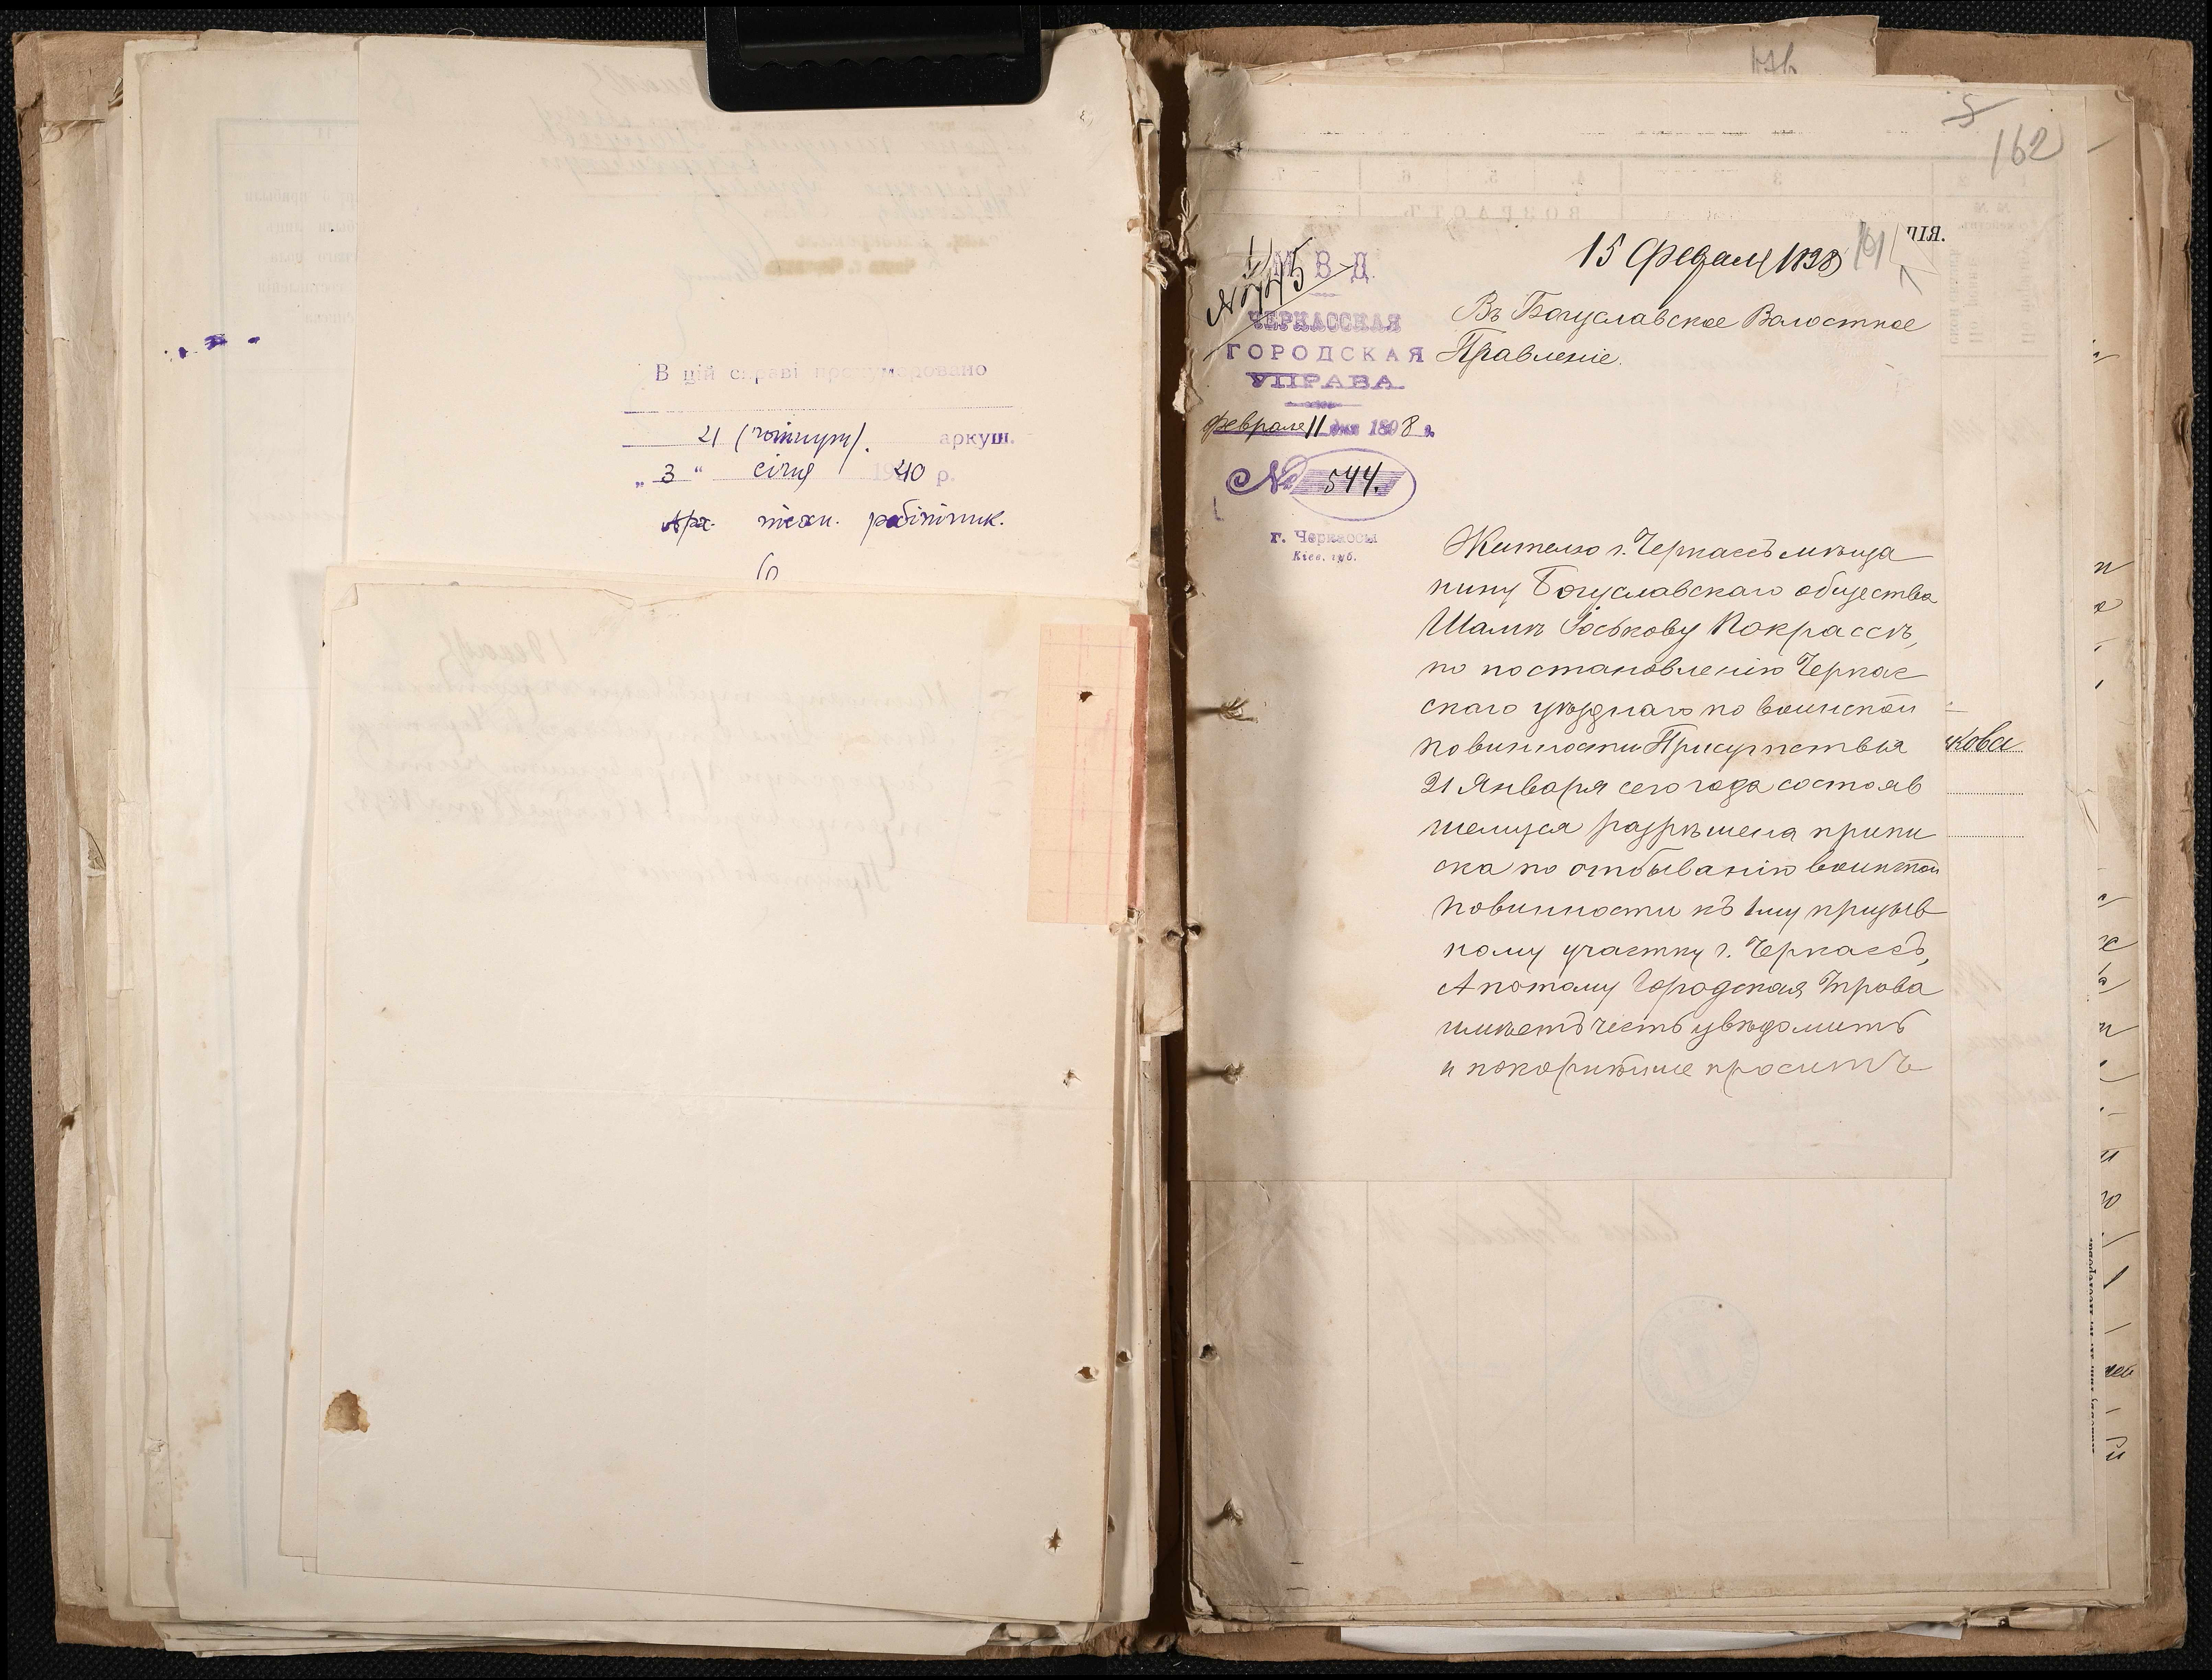 В цій справі пронумеровано
21 (           ). аркуш.
„ 3 “ січня 1940 р.
Арх. техн. робітник.
162
5
101
ція.
15 Феврал 1898
№ 745
М. В. Д.
ЧЕРКАССКАЯ
ГОРОДСКАЯ
УПРАВА.
Февраля 11 дня 1898 г.
№ 544.
г. Черкассы
Кіев. губ.
Въ Богуславское Волостное
Правленіе.
Жителю г. Черкассъ мѣща
нину Богуславскаго общества
Шамѣ Іоськову Покрассѣ,
по постановленію Черкас
скаго уѣзднаго по воинской
повинности Присутствія
21 Января сего года состояв
шемуся разрѣшена припи
ска по отбыванію воинской
повинности къ 1му призыв
ному участку г. Черкассъ,
А потому Городская Управа
имѣетъ честь увѣдомить
и покорнѣйше проситъ
кова